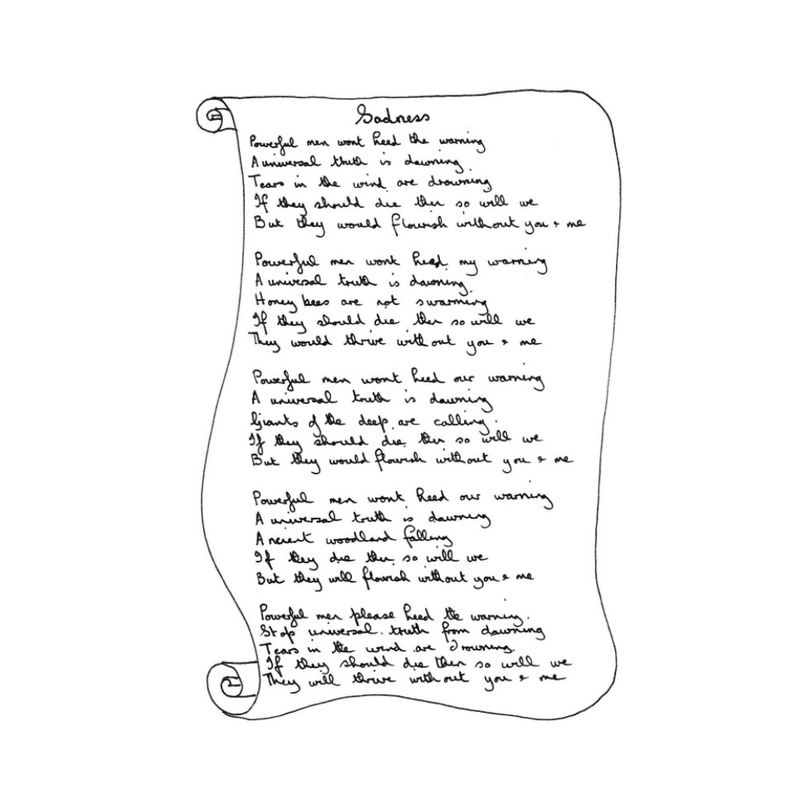 Sadness
Powerful men wont heed the warning
A universal truth is dawning.
Tears in the wind are drowning
If they should die then so will we
But they would flourish without you + me
Powerful men wont heed my warning
A universal truth is dawning.
Honey bees are not swarming
If they should die then so will we
They would thrive without you + me
Powerful men wont heed our warning
A universal truth is dawning
Giants of the deep are calling.
If they should die then so will we
But they would flourish without you + me
Powerful men wont heed our warning
A universal truth is dawning
Ancient woodland falling
If they die then so will we
But they will flourish without you + me
Powerful men please heed the warning.
Stop universal truth from dawning
Tears in the wind are drowning.
If they should die then so will we
They will thrive without you + me